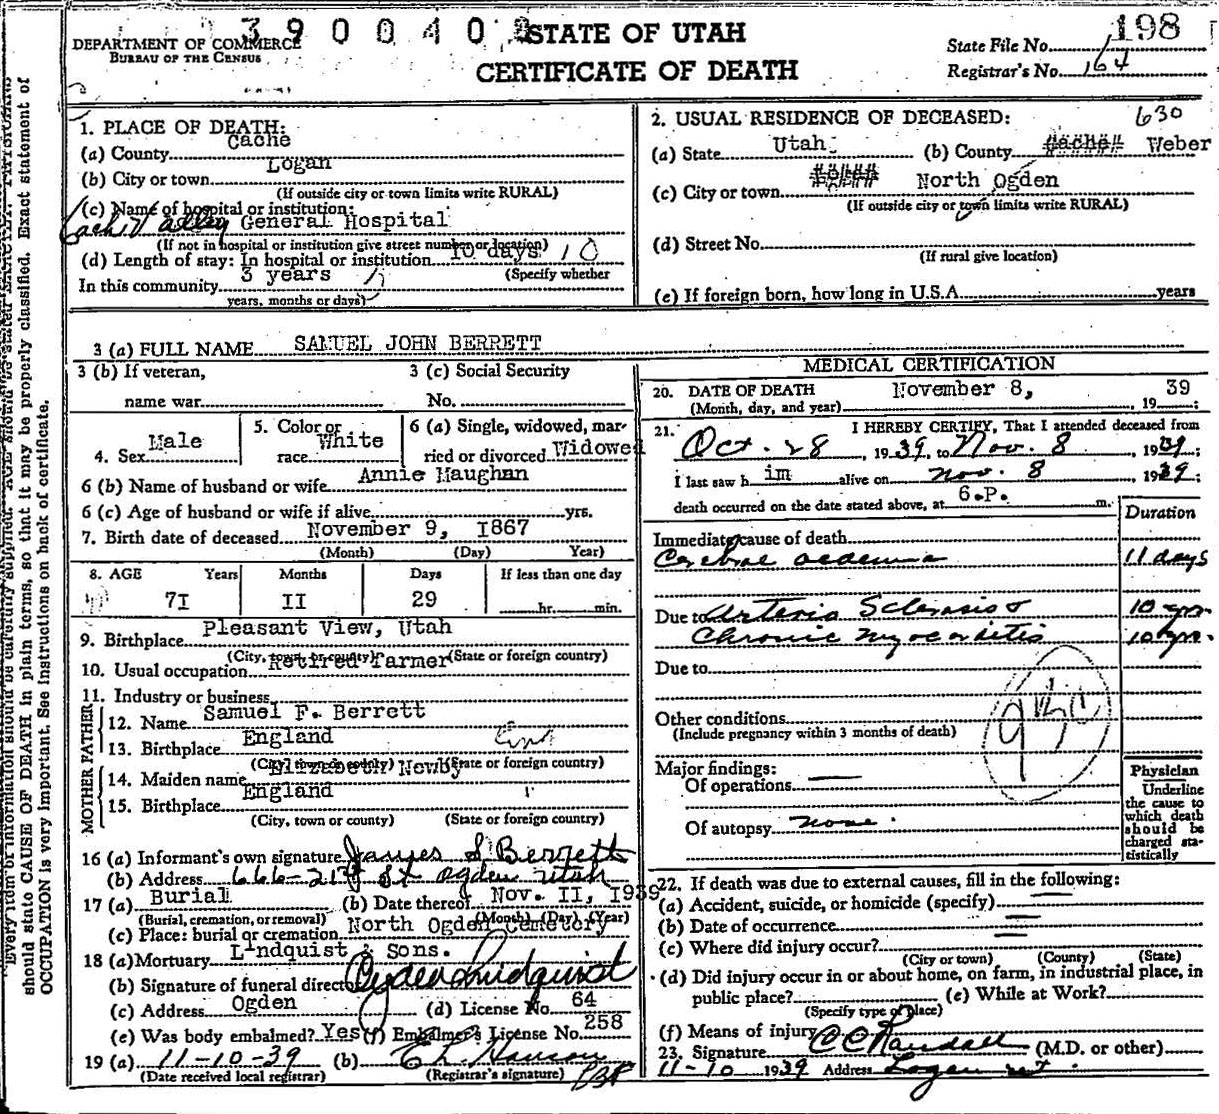 3900402 STATE OF UTAH
198
DEPARTMENT OF COMMERCE
BUREAU OF THE CENSUS
CERTIFICATE OF DEATH
State File No.
Registrar's No. 164
1. PLACE OF DEATH:
(a) County Cache
(b) City or town Logan
(If outside city or town limits write RURAL)
(c) Name of hospital or institution:
Cache Valley General Hospital
(If not in hospital or institution give street number or location)
(d) Length of stay: In hospital or institution 10 days 10
(Specify whether
In this community 3 years
years, months or days)
2. USUAL RESIDENCE OF DECEASED: 630
(a) State Utah (b) County Weber
(c) City or town North Ogden
(If outside city or town limits write RURAL)
(d) Street No.
(If rural give location)
(e) If foreign born, how long in U.S.A. years
3 (a) FULL NAME SAMUEL JOHN BERRETT
3 (b) If veteran, name war
3 (c) Social Security No.
4. Sex Male
5. Color or race White
6 (a) Single, widowed, married or divorced Widowed
6 (b) Name of husband or wife Annie Maughan
6 (c) Age of husband or wife if alive yrs.
7. Birth date of deceased November 9, I867
(Month) (Day) Year)
8. AGE Years Months Days If less than one day
7I II 29 hr. min.
9. Birthplace Pleasant View, Utah
(City, town or county) (State or foreign country)
10. Usual occupation Retired Farmer
11. Industry or business
FATHER
12. Name Samuel F. Berrett
13. Birthplace England Eng
(City, town or county) (State or foreign country)
MOTHER
14. Maiden name Elizabeth Newby
15. Birthplace England "
(City, town or county) (State or foreign country)
16 (a) Informant's own signature James S Berrett
(b) Address 666-21st St Ogden Utah
17 (a) Burial (b) Date thereof Nov. II, I939
(Burial, cremation, or removal) (Month) (Day) (Year)
(c) Place: burial or cremation North Ogden Cemetery
18 (a) Mortuary Lindquist & Sons.
(b) Signature of funeral director Lindquist
(c) Address Ogden (d) License No. 64
(e) Was body embalmed? Yes (f) Embalmer's License No. 258
19 (a) 11-10-39 (b) E L Hanson
(Date received local registrar) (Registrar's signature)
MEDICAL CERTIFICATION
20. DATE OF DEATH November 8, 1939;
(Month, day, and year)
21. I HEREBY CERTIFY, That I attended deceased from
Oct. 28, 1939, to Nov. 8 1939;
I last saw him alive on Nov. 8 1939;
death occurred on the date stated above, at 6.P. m.
Duration
Immediate cause of death
Cerebral oedemia 11 days
Due to Arterio Sclerosis & 10 yrs.
Chronic Myocarditis 10 yrs.
Due to
Other conditions
(Include pregnancy within 3 months of death)
Major findings:
Of operations
Of autopsy none.
Physician
Underline the cause to which death should be charged statistically
22. If death was due to external causes, fill in the following:
(a) Accident, suicide, or homicide (specify)
(b) Date of occurrence
(c) Where did injury occur?
(City or town) (County) (State)
(d) Did injury occur in or about home, on farm, in industrial place, in
public place? (e) While at Work?
(Specify type of place)
(f) Means of injury
23. Signature C C Randall (M.D. or other)
11-10 1939 Address Logan ut.
should state CAUSE OF DEATH in plain terms, so that it may be properly classified. Exact statement of
OCCUPATION is very important. See instructions on back of certificate.